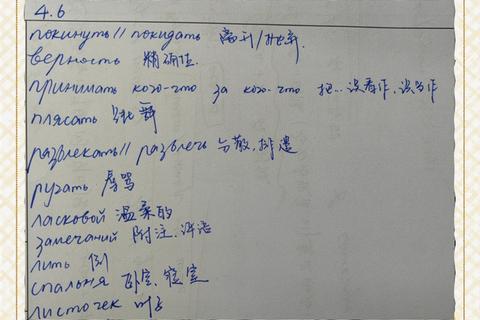 4.6
покинуть // покидать 离开/抛弃
верность 精确性
принимать кого-что за кого-что 把...误看作,误当作
плясать 跳舞
развлекать // развлечь 分散,排遣
ругать 辱骂
ласковой 温柔的
замечаний 附注,评语
лить 倒
спальня 卧室、寝室
листочек 叶